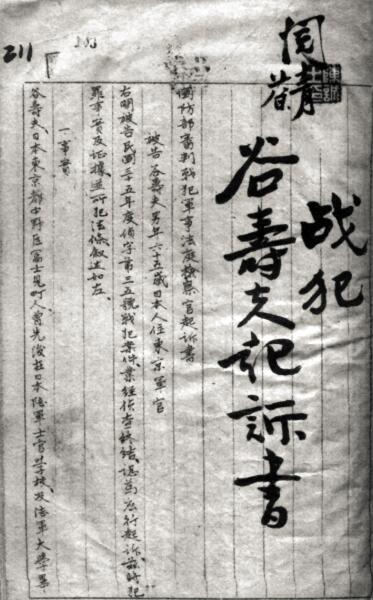 211
战犯
谷壽夫起訴書
國防部審判戰犯軍事法庭檢察官起訴書
被告谷壽夫男年六十五歲日本人住東京軍官
右開被告民國三十五年度偵字第三五號戰犯案件業經偵查終結認為應行起訴茲將犯
罪事實及證據並所犯法條敘述如左
一事實
谷壽夫日本東京都中野區富士見町人曾先後在日本陸軍士官學校及陸軍大學畢